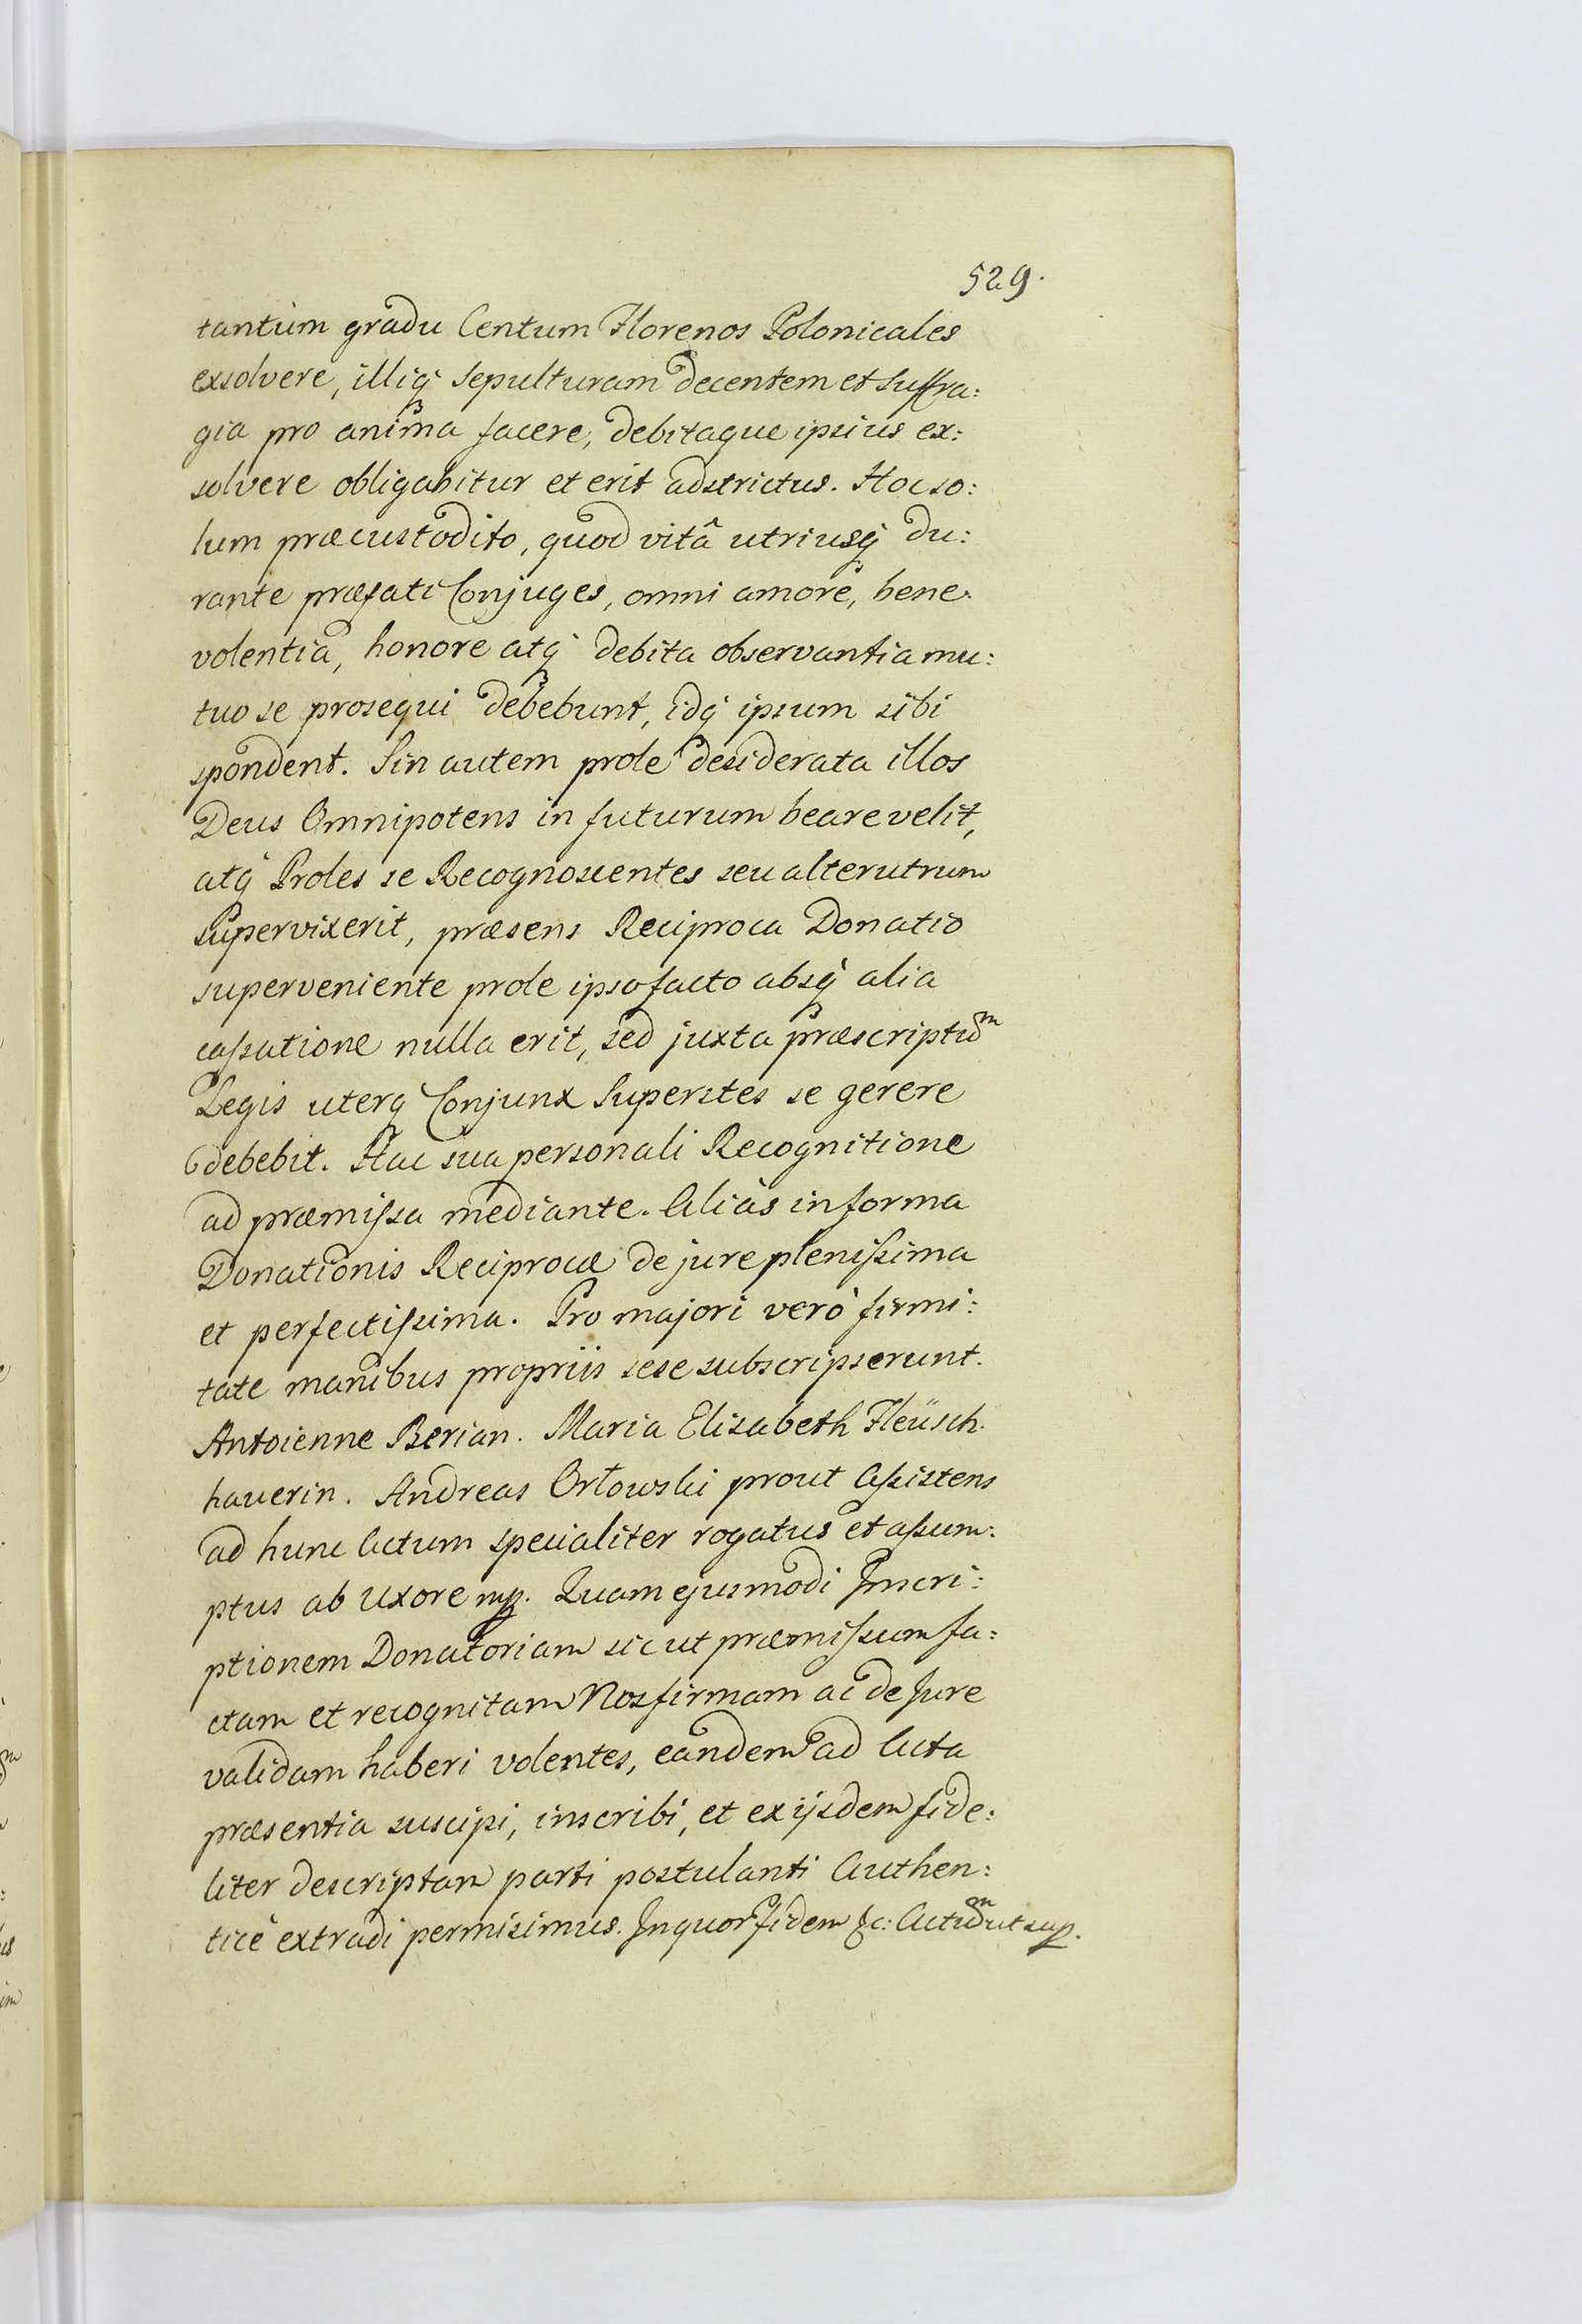 529.
tantum gradu Centum Florenos Polonicales
exsolvere, illiq́ Sepulturam decentem et Suffra:
gia pro anima facere, debitaque ipsius ex:
solvere obligabitur et erit adstrictus. Hoc so:
lum præcustodito, quod vitâ utriusq́ du:
rante præfati Conjuges, omni amore, bene.
volentia, honore atq́ debita observantia mu:
tuo se prosequi debebunt, idq́ ipsum sibi
spondent. Sin autem prole desiderata illos
Deus Omnipotens in futurum beare velit,
atq́ Proles se Recognoscentes seu alterutrum
supervixerit, præsens Reciproca Donatio
superveniente prole ipso facto absq́ alia
caſsatione nulla erit, sed juxta præscriptu͂m
Legis uterq Conjunx Superstes se gerere
debebit. Hac sua personali Recognitione
ad præmiſsa mediante. Aliàs in forma
Donationis Reciprocæ de jure pleniſsima
et perfectiſsima. Pro majori verò firmi:
tate manibus propriis sese subscripserunt.
Antoienne Berian. Maria Elisabeth Fleüsch.
hauerin. Andreas Orłowski prout Aſsistens
ad hunc Actum specialiter rogatus et aſsum:
ptus ab Uxore mp. Quam ejusmodi Inscri:
ptionem Donatoriam sicut præmiſsum fa:
ctam et recognitam Nos firmam ac de Jure
validam haberi volentes, eandem ad Acta
præsentia suscipi, inscribi, et ex ijsdem fide:
liter descriptam parti postulanti Authen:
ticè extradi permisimus. In quor fidem &c: Actu͂m ut sup.